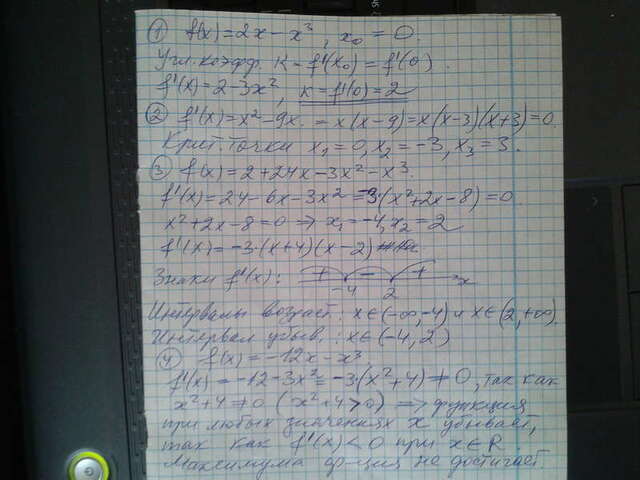 ① f(x)=2x-x³, x₀=0.
Угл. коэфф. k=f'(x₀)=f'(0).
f'(x)=2-3x², k=f'(0)=2
② f'(x)=x²-9x.=x(x-9)=x(x-3)(x+3)=0
Крит. точки x₁=0, x₂=-3, x₃=3.
③ f(x)=2+24x-3x²-x³.
f'(x)=24-6x-3x²=-3(x²+2x-8)=0
x²+2x-8=0 ⇒ x₁=-4, x₂=2
f'(x)=-3·(x+4)(x-2)
Знаки f'(x): + - + x
-4 2
Интервалы возраст.: x∈(-∞,-4) и x∈(2,+∞)
Интервал убыв.: x∈(-4,2)
④ f(x)=-12x-x³.
f'(x)=-12-3x²=-3·(x²+4)≠0, так как
x²+4≠0 (x²+4>0) ⇒ функция
при любых значениях x убывает,
так как f'(x)<0 при x∈R
Максимума ф-ция не достигает